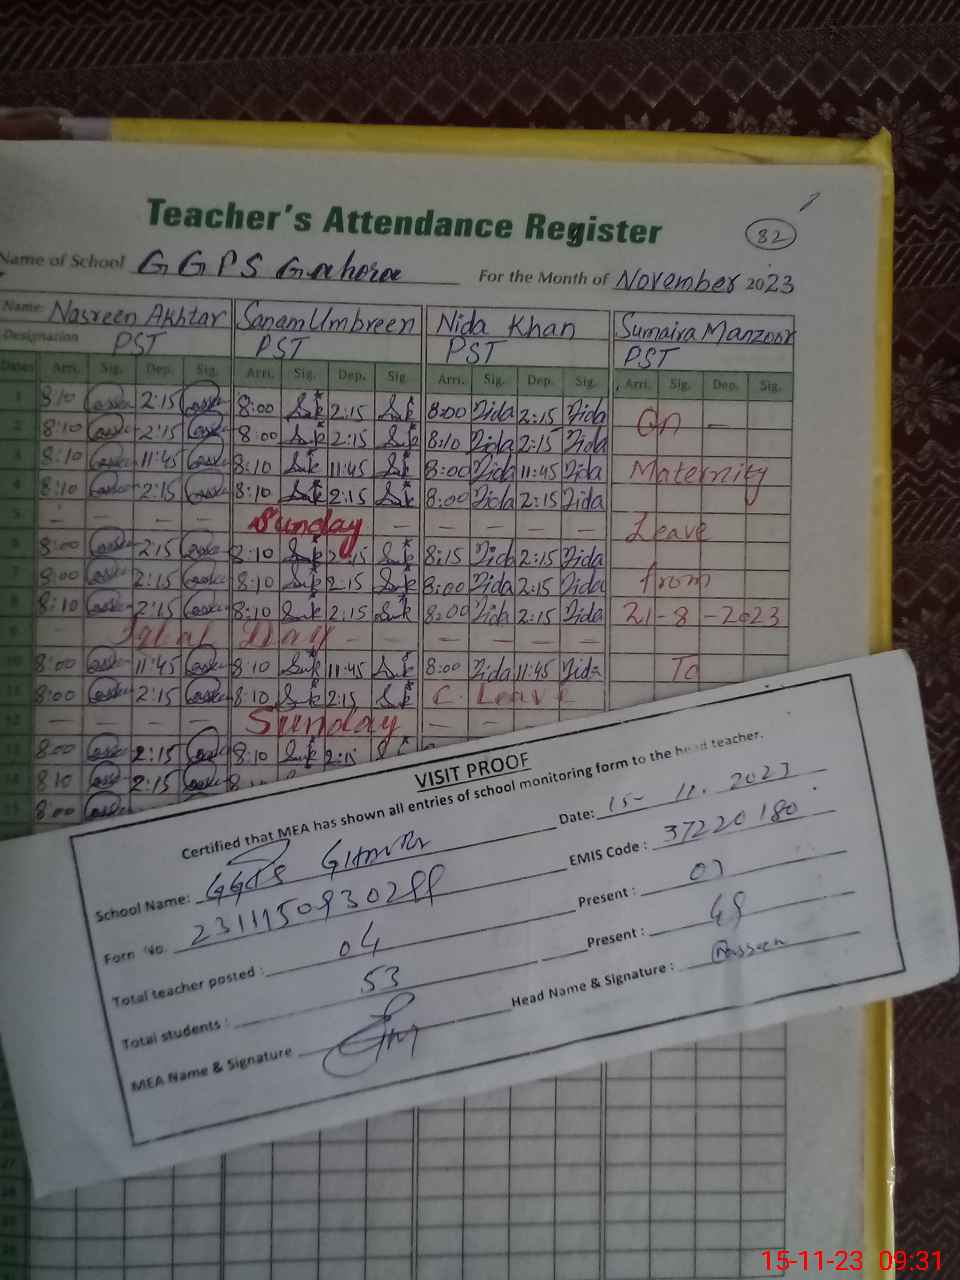 Teacher's Attendance Register
82
Name of School G G P S Gahora For the Month of November 2023
Name: Nasreen Akhtar Sanam Umbreen Nida Khan Sumaira Manzoor
Designation PST PST PST PST
Dates Arri. Sig. Dep. Sig. Arri. Sig. Dep. Sig. Arri. Sig. Dep. Sig. Arri. Sig. Dep. Sig.
1 8:10 2:15 8:00 2:15 8:00 Nida 2:15 Nida On —
2 8:10 2:15 8:00 2:15 8:10 Nida 2:15 Nida
3 8:10 11:45 8:10 11:45 8:00 Nida 11:45 Nida Maternity
4 8:10 2:15 8:10 2:15 8:00 Nida 2:15 Nida
5 — — — — Sunday — — — — — Leave
6 8:00 2:15 8:10 2:15 8:15 Nida 2:15 Nida
7 8:00 2:15 8:10 2:15 8:00 Nida 2:15 Nida from
8 8:10 2:15 8:10 2:15 8:00 Nida 2:15 Nida 21-8-2023
9 Iqbal Day — — — — — —
10 8:00 11:45 8:10 11:45 8:00 Nida 11:45 Nida To
11 8:00 2:15 8:10 2:15 C. Leave
12 — — — — Sunday
13 8:00 2:15 8:10 2:15
14 8:10 2:15
15 8:00
VISIT PROOF
Certified that MEA has shown all entries of school monitoring form to the head teacher.
School Name: GGPS Date: 15-11.2023
Form No. EMIS Code: 37220180
Total teacher posted: 04 Present:
Total students: 53 Present: 49
MEA Name & Signature Head Name & Signature:
27
28
29
30
15-11-23 09:31